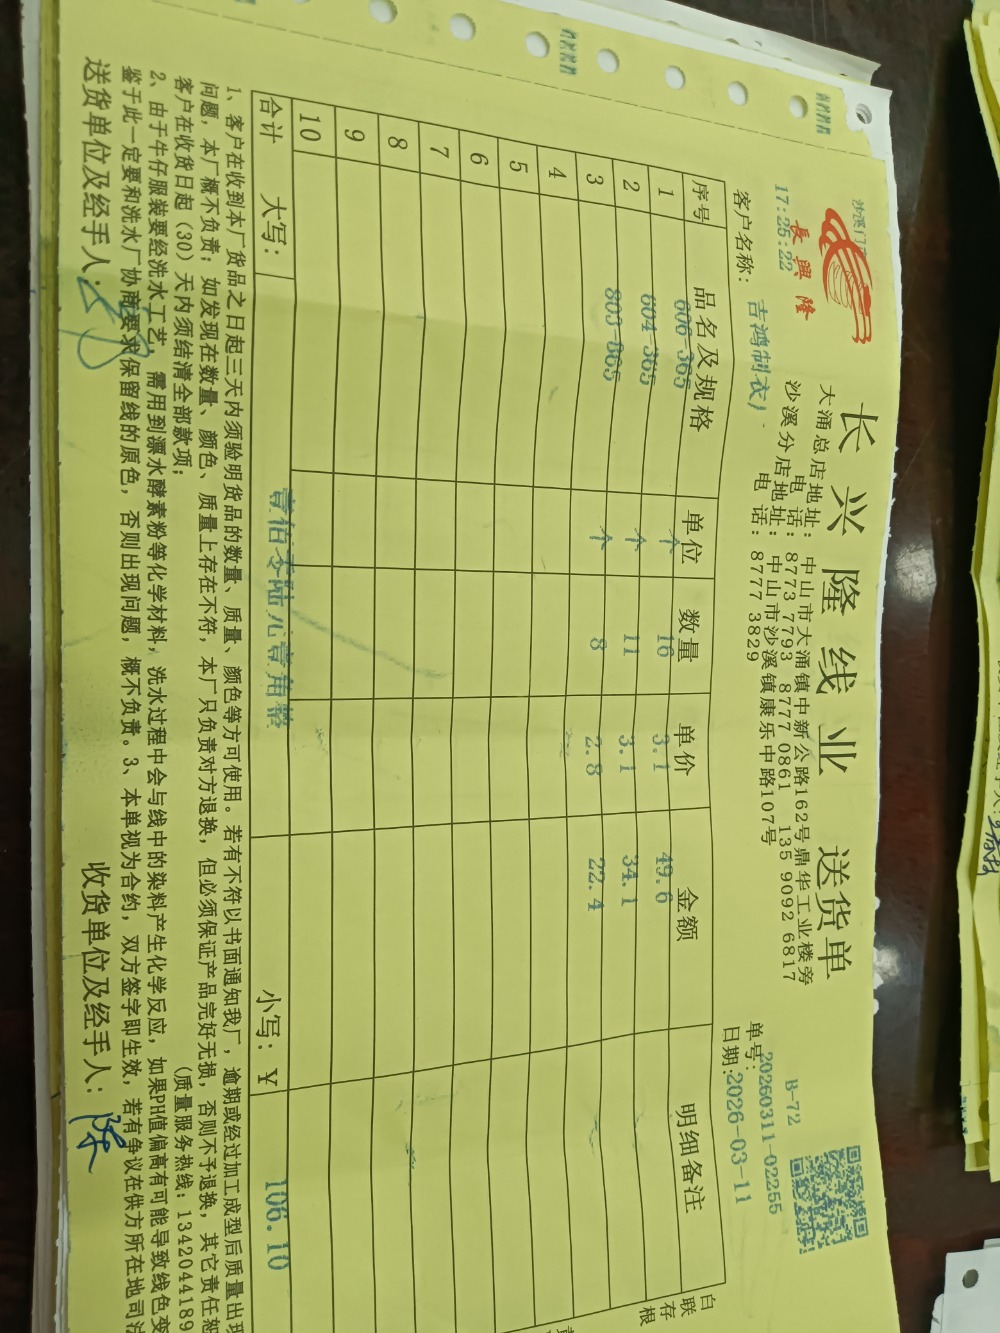 沙溪门
17:25:22
長興隆
长兴隆线业 送货单
大涌总店地址: 中山市大涌镇中新公路162号鼎华工业楼旁
电话: 8773 7793 8777 0861 135 9092 6817
沙溪分店地址: 中山市沙溪镇康乐中路107号
电话: 8777 3829
B-72
单号: 20260311-02255
客户名称: 吉鸿制衣厂
日期: 2026-03-11
序号 品名及规格 单位 数量 单价 金额 明细备注
1 606-365 个 16 3.1 49.6
2 604-365 个 11 3.1 34.1
3 803-865 个 8 2.8 22.4
4
5
6
7
8
9
10
合计 大写: 壹佰零陆元壹角整 小写: ¥ 106.10
白联存根
1、客户在收到本厂货品之日起三天内须验明货品的数量、质量、颜色等方可使用。若有不符以书面通知我厂,逾期或经过加工成型后质量出现
问题,本厂概不负责;如发现在数量、颜色、质量上存在不符,本厂只负责对方退换,但必须保证产品完好无损,否则不予退换,其它责任恕
客户在收货日起(30)天内须结清全部款项; (质量服务热线:1342044189
2、由于牛仔服装要经洗水工艺,需用到漂水酵素粉等化学材料,洗水过程中会与线中的染料产生化学反应,如果PH值偏高有可能导致线色变
鉴于此一定要和洗水厂协商要求保留线的原色,否则出现问题,概不负责。3、本单视为合约,双方签字即生效,若有争议在供方所在地司法
送货单位及经手人: 收货单位及经手人: 陈